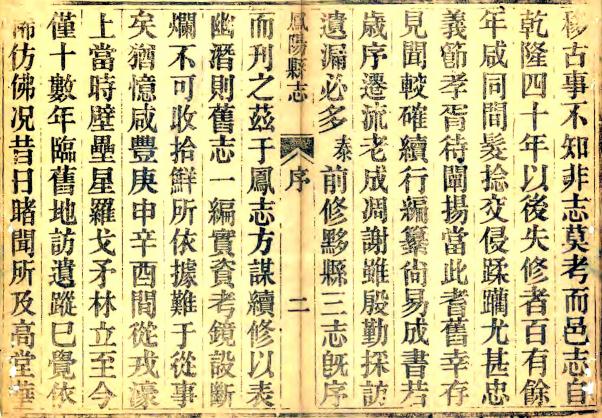 古事不知非志莫考而邑志自
乾隆四十年以後失修者百有餘
年咸同間髮捻交侵蹂躪尤甚忠
義節孝胥待闡揚當此耆舊幸存
見聞較確續行編纂尚易成書若
歲序遷流老成凋謝雖殷勤採訪
遺漏必多泰前修黟縣三志旣序
鳳陽縣志 序 二
而刊之茲于鳳志方謀續修以表
幽潛則舊志一編實資考鏡設斷
爛不可收拾鮮所依據難于從事
矣猶憶咸豐庚申辛酉間從戎濠
上當時壁壘星羅戈矛林立至今
僅十數年臨舊地訪遺蹤已覺依
仿佛况昔日睹聞所及高堂華